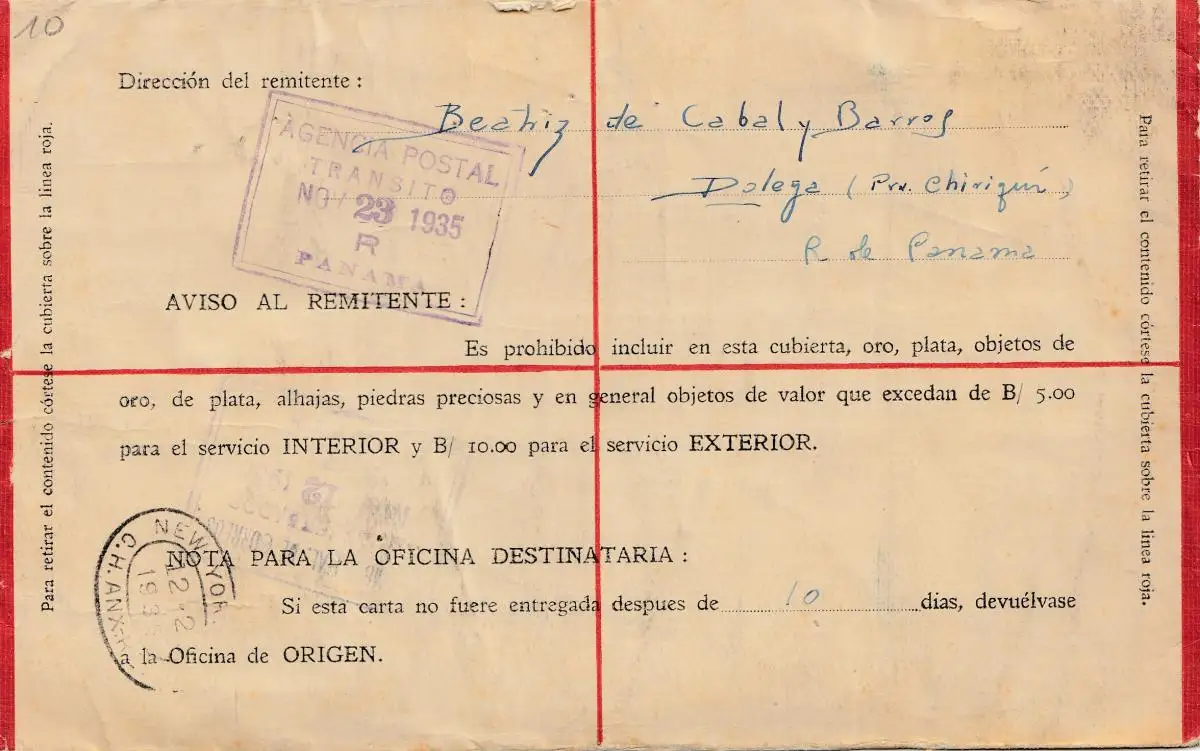 10
Dirección del remitente :
Beatriz de Cabal y Barros
Dolega (Prv. Chiriquí)
R de Panama
AGENCIA POSTAL
TRANSITO
NOV 23 1935
R
PANAMA
AVISO AL REMITENTE :
Es prohibido incluir en esta cubierta, oro, plata, objetos de
oro, de plata, alhajas, piedras preciosas y en general objetos de valor que excedan de B/ 5.00
para el servicio INTERIOR y B/ 10.00 para el servicio EXTERIOR.
NEW YOR
C.H. ANX
12-2
193
NOTA PARA LA OFICINA DESTINATARIA :
Si esta carta no fuere entregada despues de 10 días, devuélvase
a la Oficina de ORIGEN.
Para retirar el contenido córtese la cubierta sobre la linea roja.
Para retirar el contenido córtese la cubierta sobre la linea roja.